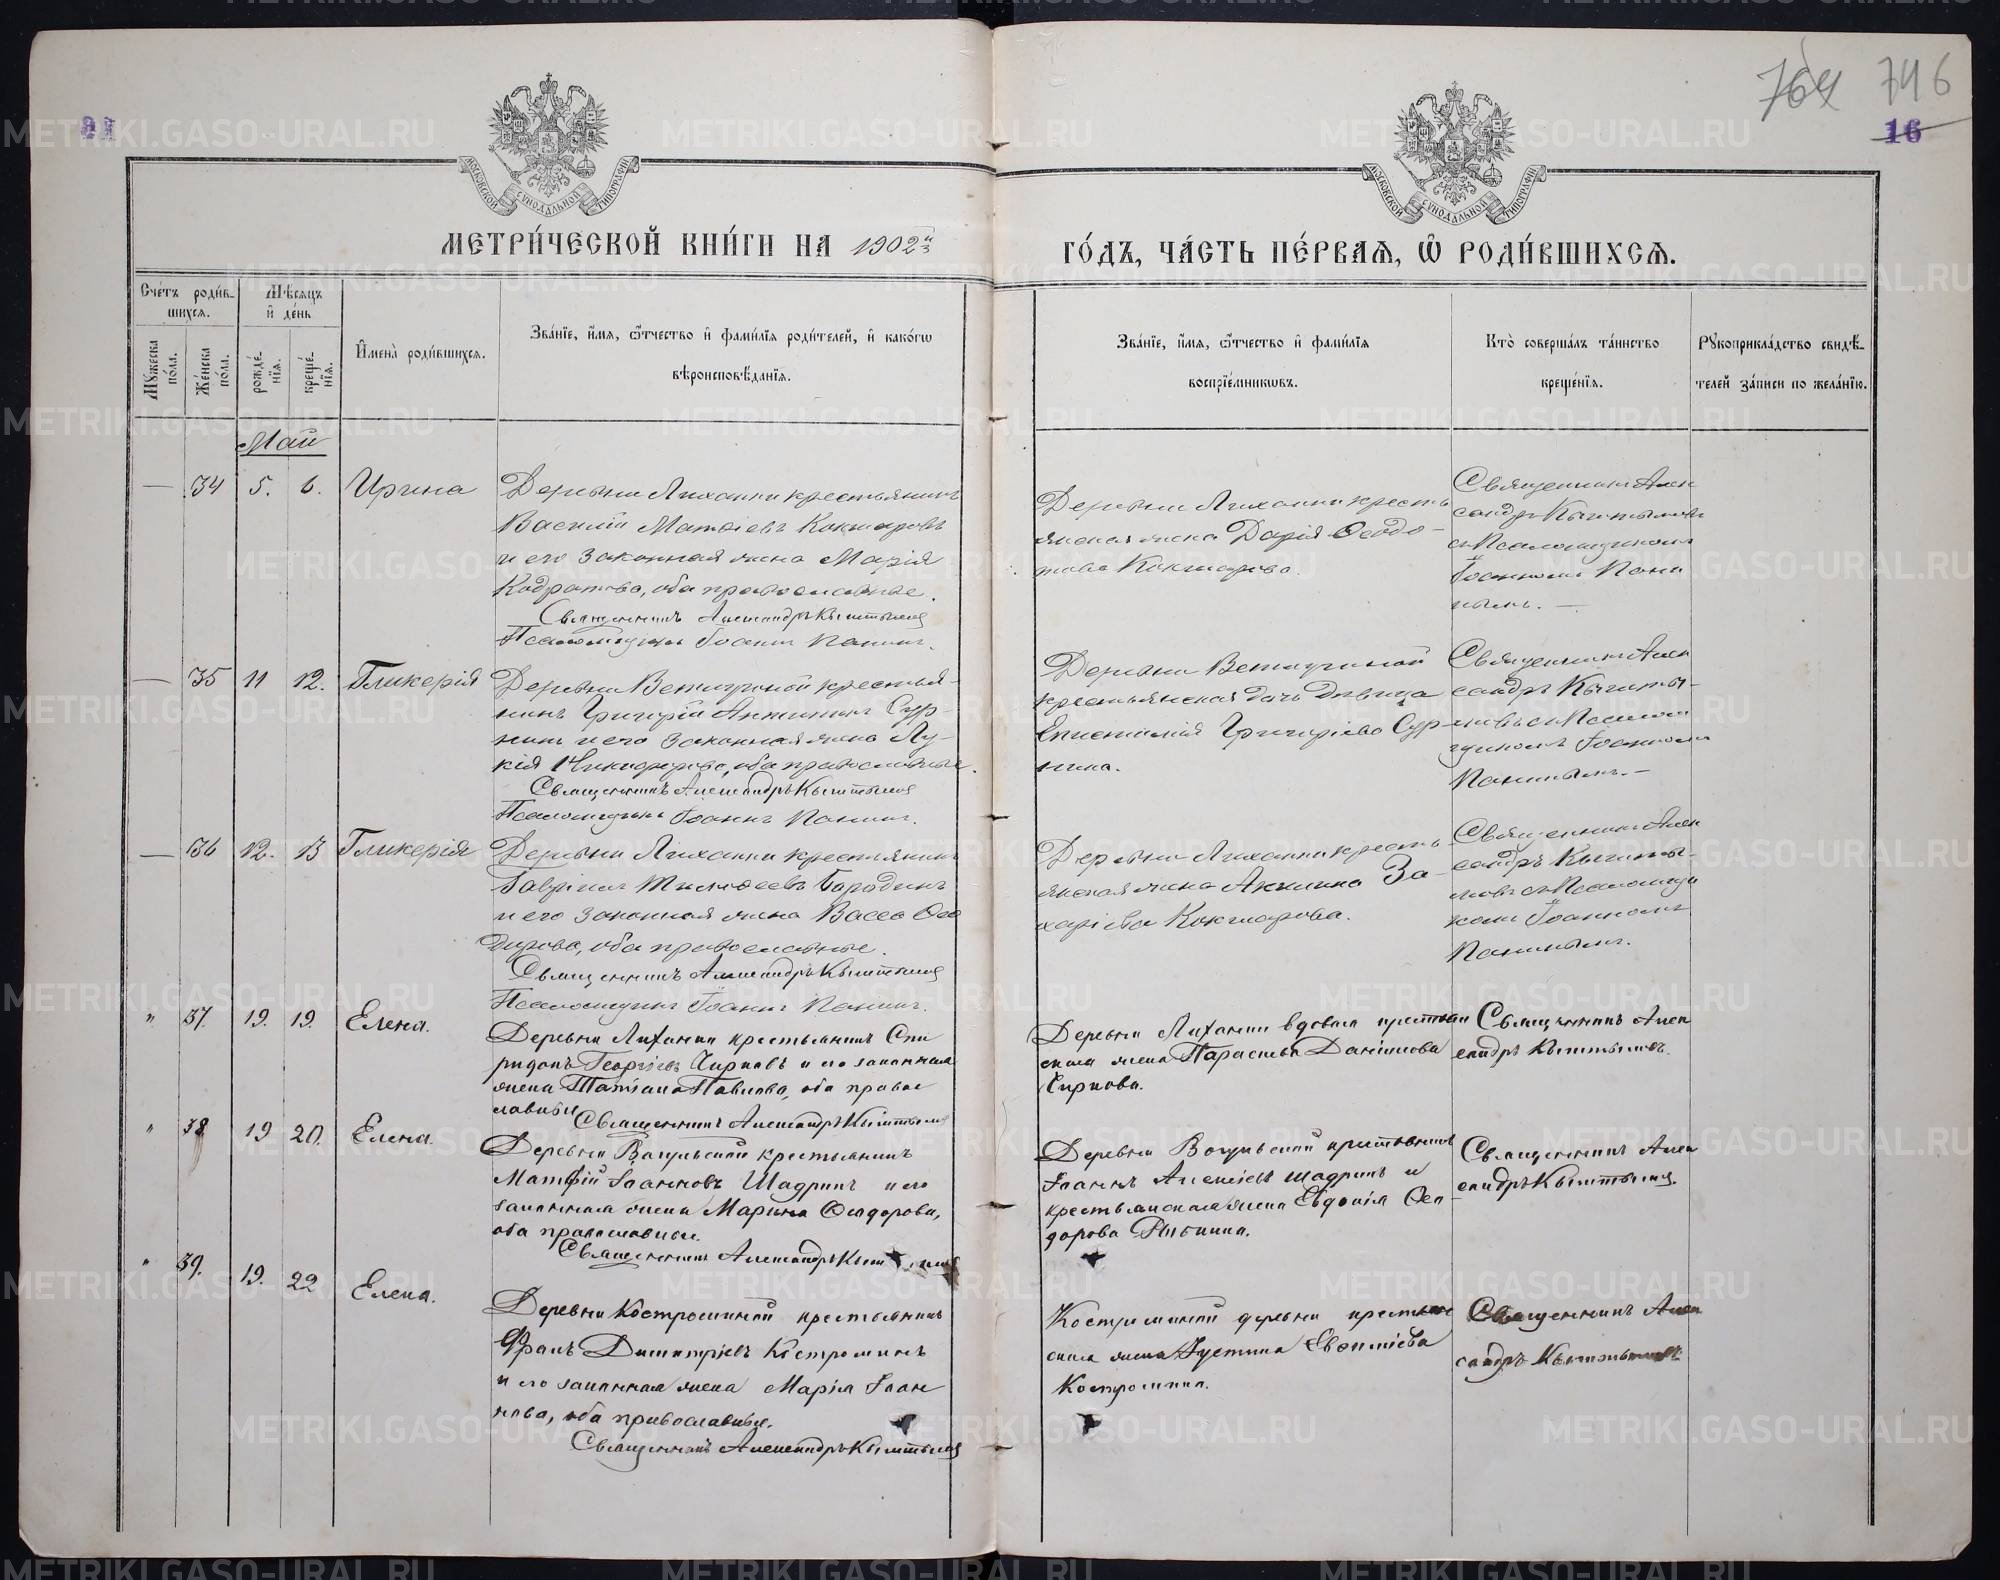 764 746
16
МОСКОВСКОЙ СѴНОДАЛЬНОЙ ТИПОГРАФІИ
МОСКОВСКОЙ СѴНОДАЛЬНОЙ ТИПОГРАФІИ
МЕТРИ́ЧЕСКОЙ КНИ́ГИ НА 1902й
ГО́ДЪ, ЧА́СТЬ ПЕ́РВАѦ, Ѽ РОДИ́ВШИХСѦ.
Сче́тъ роди́в-
шихсѧ.
Мꙋжеска по́ла.
Же́нска по́ла.
Мѣ́сѧцъ
и҆ де́нь
рожде́-
нїѧ.
креще́-
нїѧ.
И҆мена̀ роди́вшихсѧ.
Зва́нїе, и҆́мѧ, ѻ҆́тчество и҆ фами́лїѧ роди́телей, и҆ како́гѡ
вѣроисповѣ́данїѧ.
Зва́нїе, и҆́мѧ, ѻ҆́тчество и҆ фами́лїѧ
воспрїе́мникѡвъ.
Кто̀ соверша́лъ та́инство
креще́нїѧ.
Рꙋкоприкла́дство свидѣ́-
телей за́писи по жела́нїю.
Май
— 34 5. 6. Ирина
Деревни Лиханки крестьянинъ
Василій Матѳіевъ Кокшаровъ
и его законная жена Марія
Кодратова, оба православные.
Священникъ Александръ Кыштымов
Псаломщикъ Іоаннъ Панинъ.
Деревни Лиханки кресть
янская жена Дарія Ѳеодо-
това Кокшарова.
Священникъ Алек
сандръ Кыштымовъ
съ Псаломщикомъ
Іоанномъ Пани
нымъ. —
— 35 11 12. Гликерія
крестья-
нинъ Григорій Антипинъ Сур-
нинъ и его законная жена Лу-
кія Никифорова, оба православные.
Священникъ Александръ Кыштымов
Псаломщикъ Іоаннъ Панинъ.
крестьянская дочь дѣвица
Епистимія Григоріева Сур-
нина.
Священникъ Алек
сандръ Кышты-
мовъ съ Псалом
щикомъ Іоанномъ
Панинымъ. —
— 36 12. 13 Гликерія
Деревни Лиханки крестьянинъ
Гавріилъ Тимоѳеевъ Бородинъ
и его законная жена Васса Ѳео
дорова, оба православные.
Священникъ Александръ Кыштымов
Псаломщикъ Іоаннъ Панинъ.
Деревни Лиханки кресть-
янская жена Акилина За-
харіева Кокшарова.
Священникъ Алек
сандръ Кышты-
мовъ съ Псаломщи
комъ Іоанномъ
Панинымъ.
" 37. 19. 19. Елена.
Деревни Лиханки крестьянинъ Спи
ридонъ Георгіевъ Чирковъ и его законная
жена Татіана Павлова, оба право
славные
Священникъ Александръ Кыштымов
Деревни Лиханки вдовая крестьян
ская жена Параскева Даніилова
Чиркова.
Священникъ Алек
сандръ Кыштымовъ.
" 38 19 20. Елена.
Деревни Вогульской крестьянинъ
Матѳій Іоанновъ Шадринъ и его
законная жена Марина Ѳеодорова,
оба православные.
Священникъ Александръ Кыштымов
Деревни Вогульской крестьянинъ
Іоаннъ Алексіевъ Шадринъ и
крестьянская жена Евдокія Ѳео-
дорова Рябинина.
Священникъ Алек
сандръ Кыштымов.
" 39. 19. 22 Елена.
Деревни Костроминой крестьянинъ
Димитріевъ Костроминъ
и его законная жена Марія Іоан
нова, оба православные.
Священникъ Александръ Кыштымов
Костроминой деревни крестьян
ская жена Іустина Евѳиміева
Костромина.
Священникъ Алек
сандръ Кыштымов